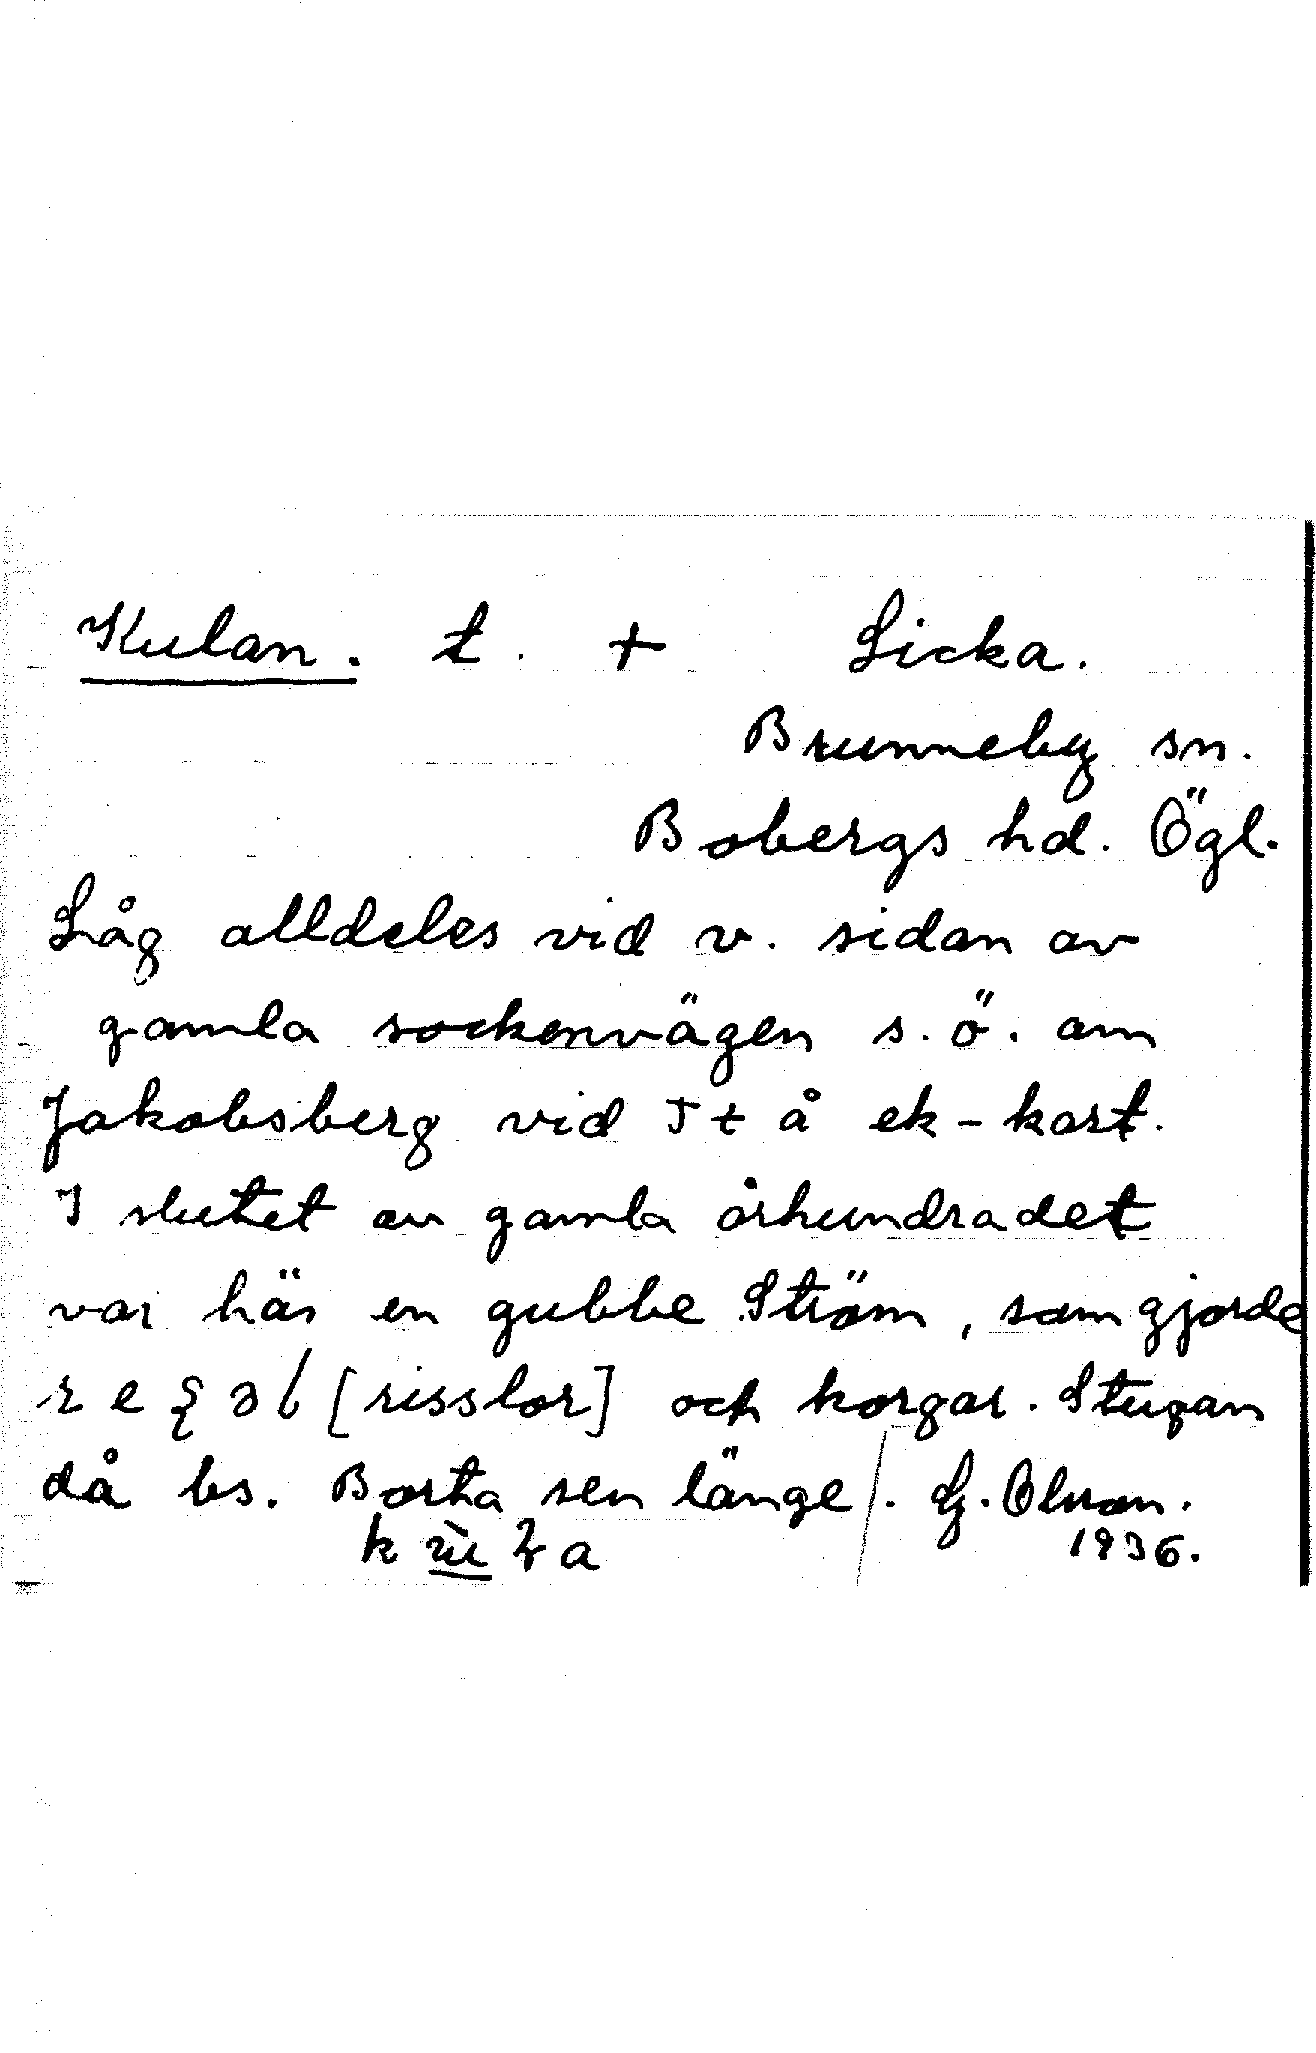 Kulan. t. + Licka.
Brunneby sn.
Bobergs hd. Ögl.
Låg alldeles vid v. sidan av
gamla sockenvägen s. ö. om
Jakobsberg vid Jt å ek-kart.
I slutet av gamla århundradet
var här en gubbe Ström, som gjorde
[risslor] och korgar. Stugan
då bs. Borta sen länge. G. Olsson.
1936.